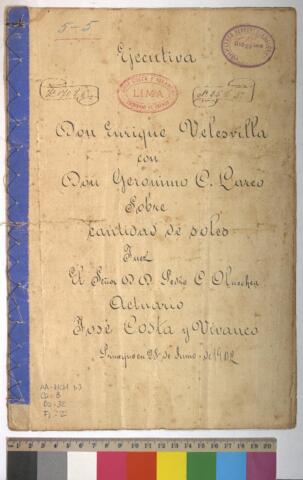 5-5
Ejecutiva
LIMA
Don Enrique Velesvilla
con
Don Geronimo C. Larco
Sobre
cantidad de soles
Juez
El Señor D. D. Pedro C. Olaechea
Actuario
José Costa y Vivanco
Principió en 28 de Junio de 1902
1 2 3 4 5 6 7 8 9 10 11 12 13 14 15 16 17 18 19 20